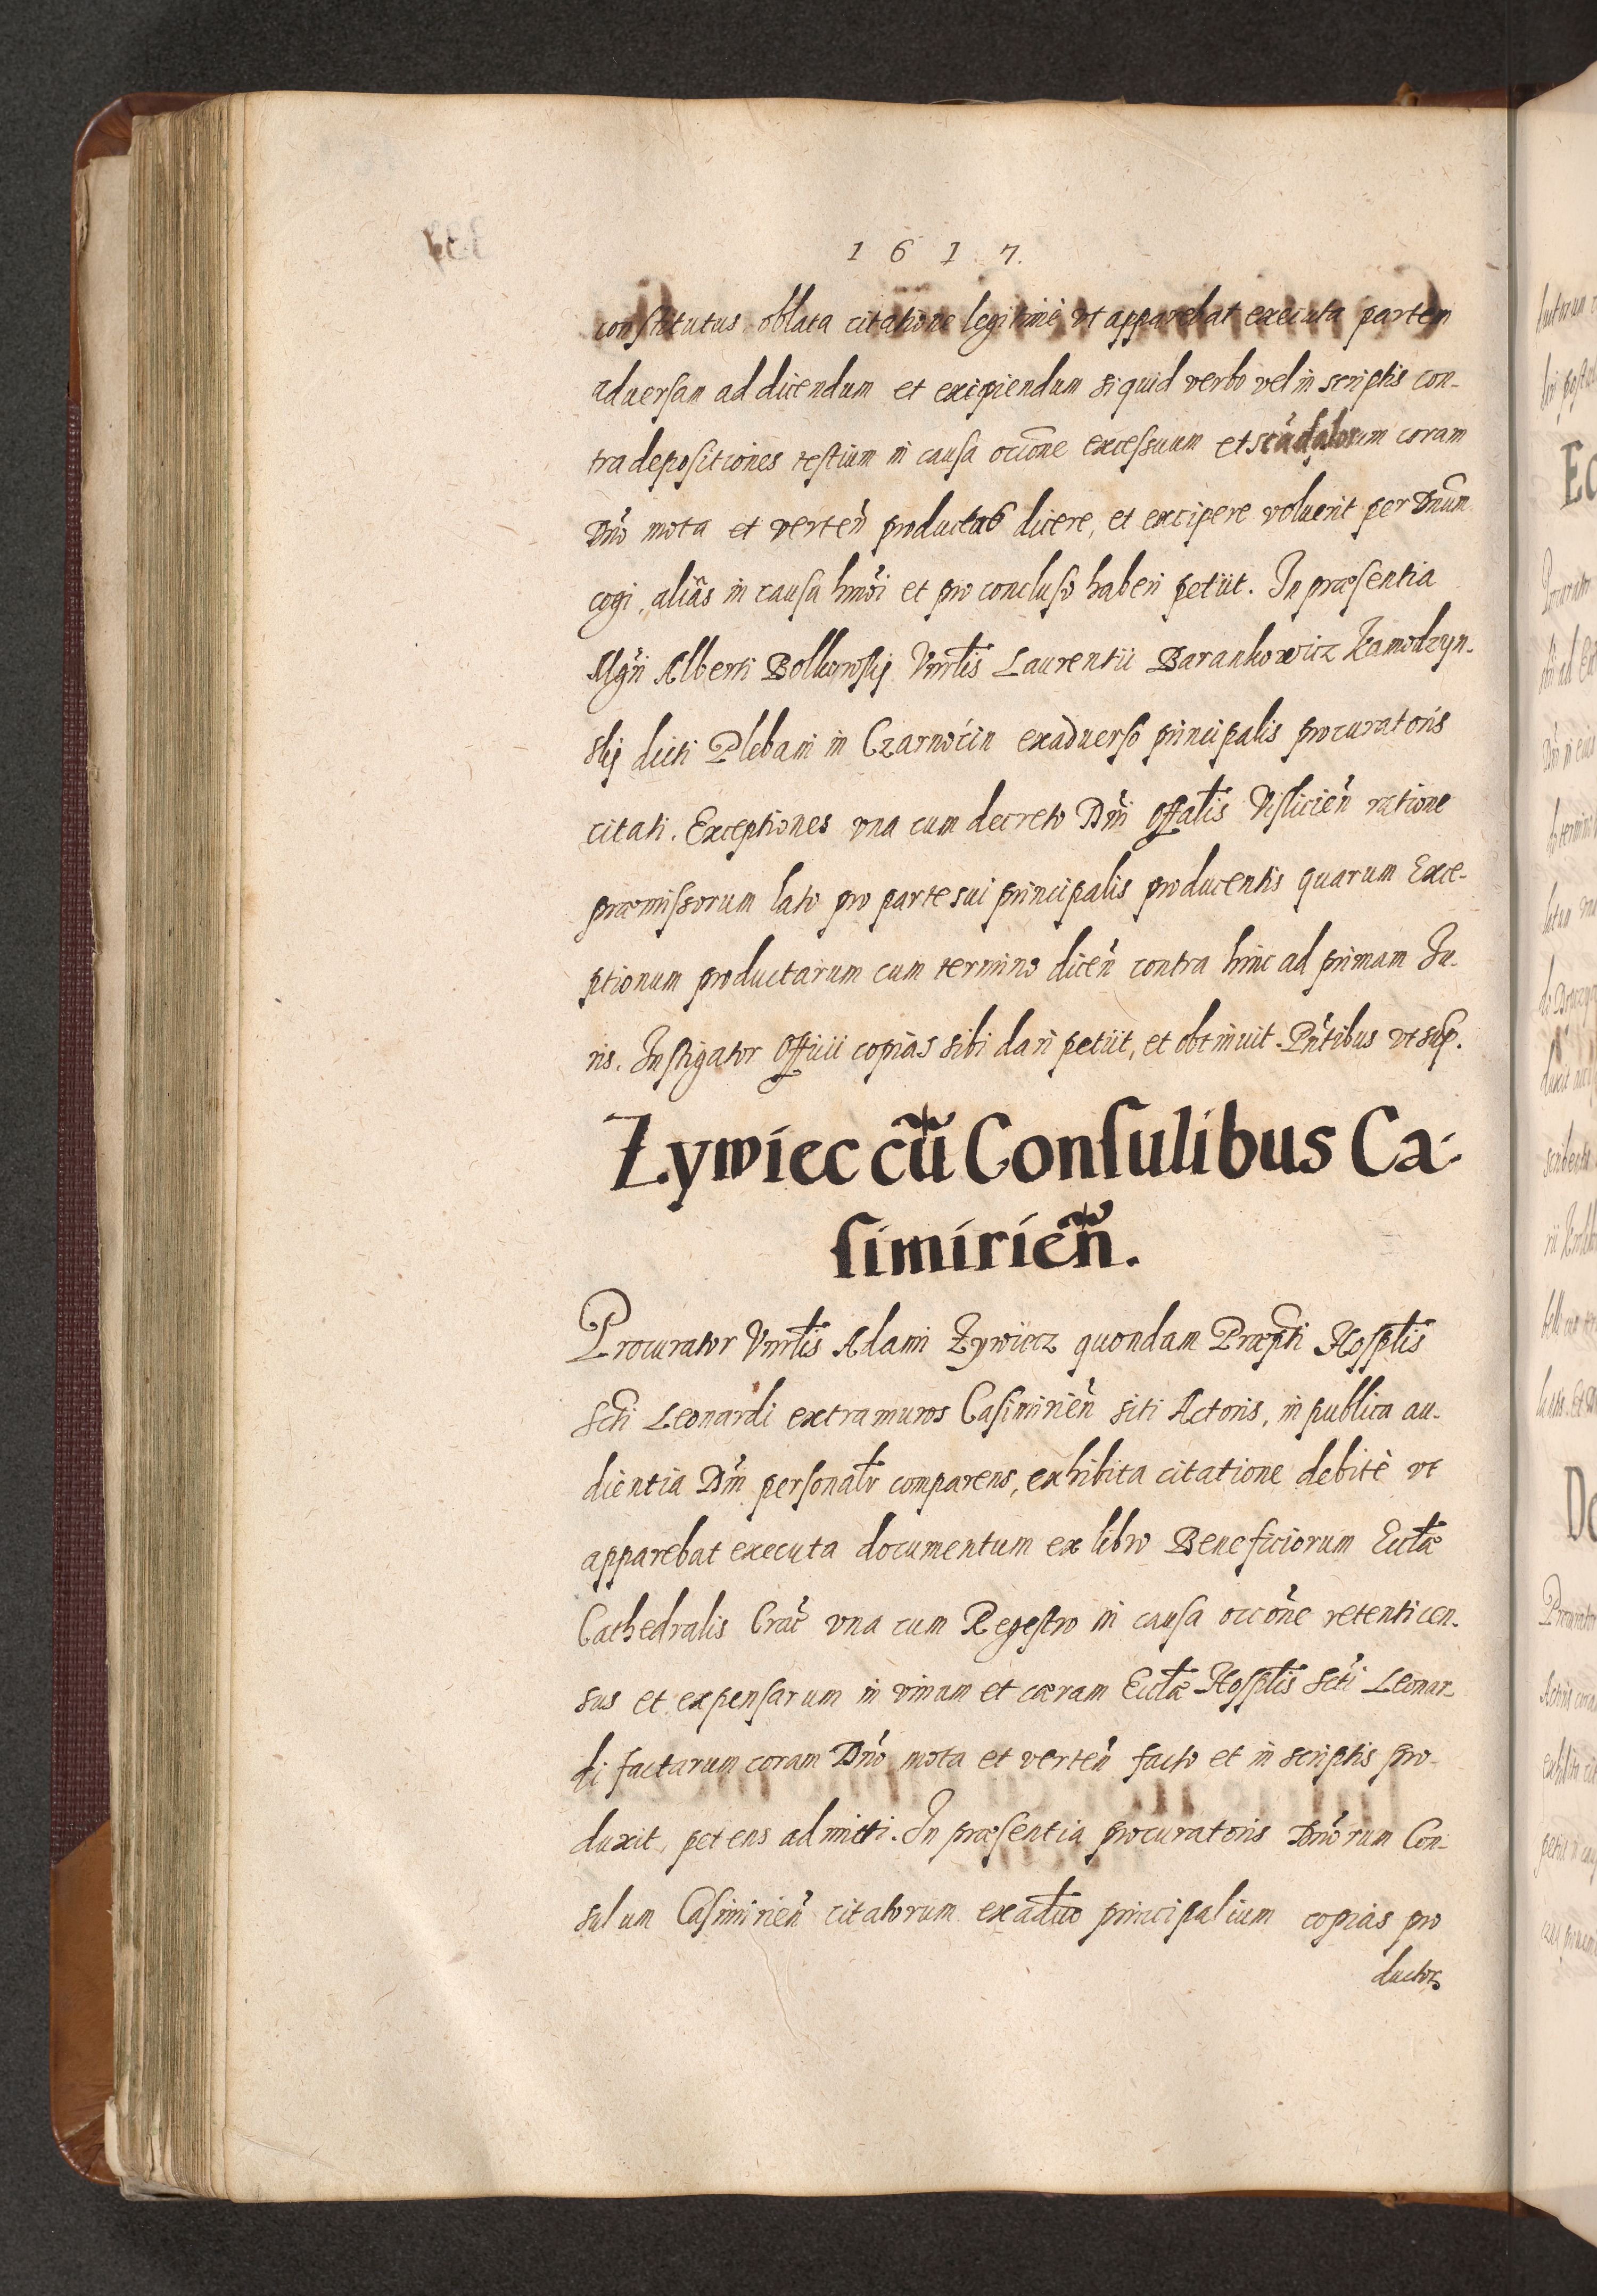 1617.
constitutus, oblata citatione legitimè vt apparebat executa partem
aduersam ad dicendum et excipiendum si quid verbo vel in scriptis con-
tra depositiones testium in causa occõne excessuum et scãdalorum coram
Dñó mota et verteñ productas dicere, et excipere voluerit per Dnũm
cogi, aliâs in causa hmõi et pro concluso haberi petiit. In præsentia
Mgri Alberti Vnrłis Laurentii Barankowicz Zamodzyn-
skij dicti Plebani in Czarnocin exaduerso principalis procuratoris
citati. Exceptiones vna cum decreto Dñi Offałis Visliciеñ ratione
præmissorum lato pro parte sui principalis producentis quarum Exce-
ptionum productarum cum termino diceñ contra hinc ad primam Iu-
ris. Instigator Officii copias sibi dari petiit, et obtinuit. Pñtibus vt sup.
Zywiec cũ Consulibus Ca-
simirieñ.
Procurator Vnrłis Adami Zywiecz quondam Præpti Hospłis
Scti Leonardi extra muros Casimirieñ siti Actoris, in publica au-
dientia Dñi personałr comparens, exhibita citatione debitè vt
apparebat executa documentum ex libro Beneficiorum Eccłæ
Cathedralis Crac̃ vna cum Regestro in causa occõne retenti cen-
sus et expensarum in vinum et cæram Eccłæ Hospłis Scti Leonar-
di factarum coram Dñó mota et verteñ facto et in scriptis pro-
duxit, petens admitti. In præsentia procuratoris Dñorum Con-
sulum Casimirieñ citatorum exadũo principalium copias pro
ductoꝝ